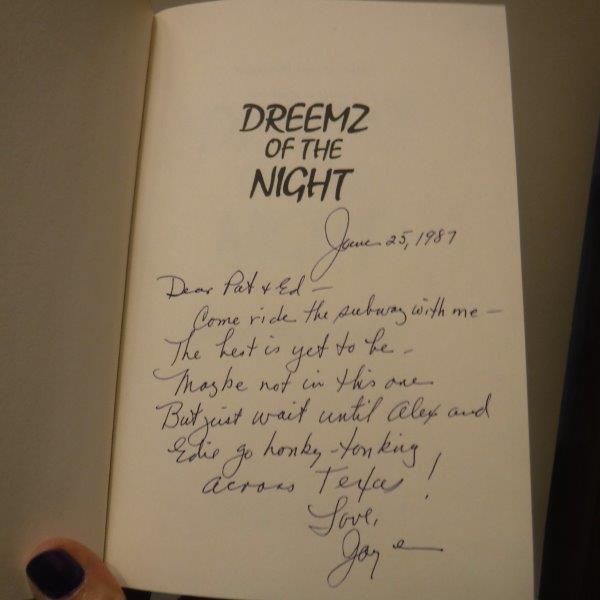 DREEMZ
OF THE
NIGHT
June 25, 1987
Dear Pat & Ed —
Come ride the subway with me —
The best is yet to be —
Maybe not in this one
But just wait until Alex and
Edie go honky-tonking
across Texas!
Love,
Joye